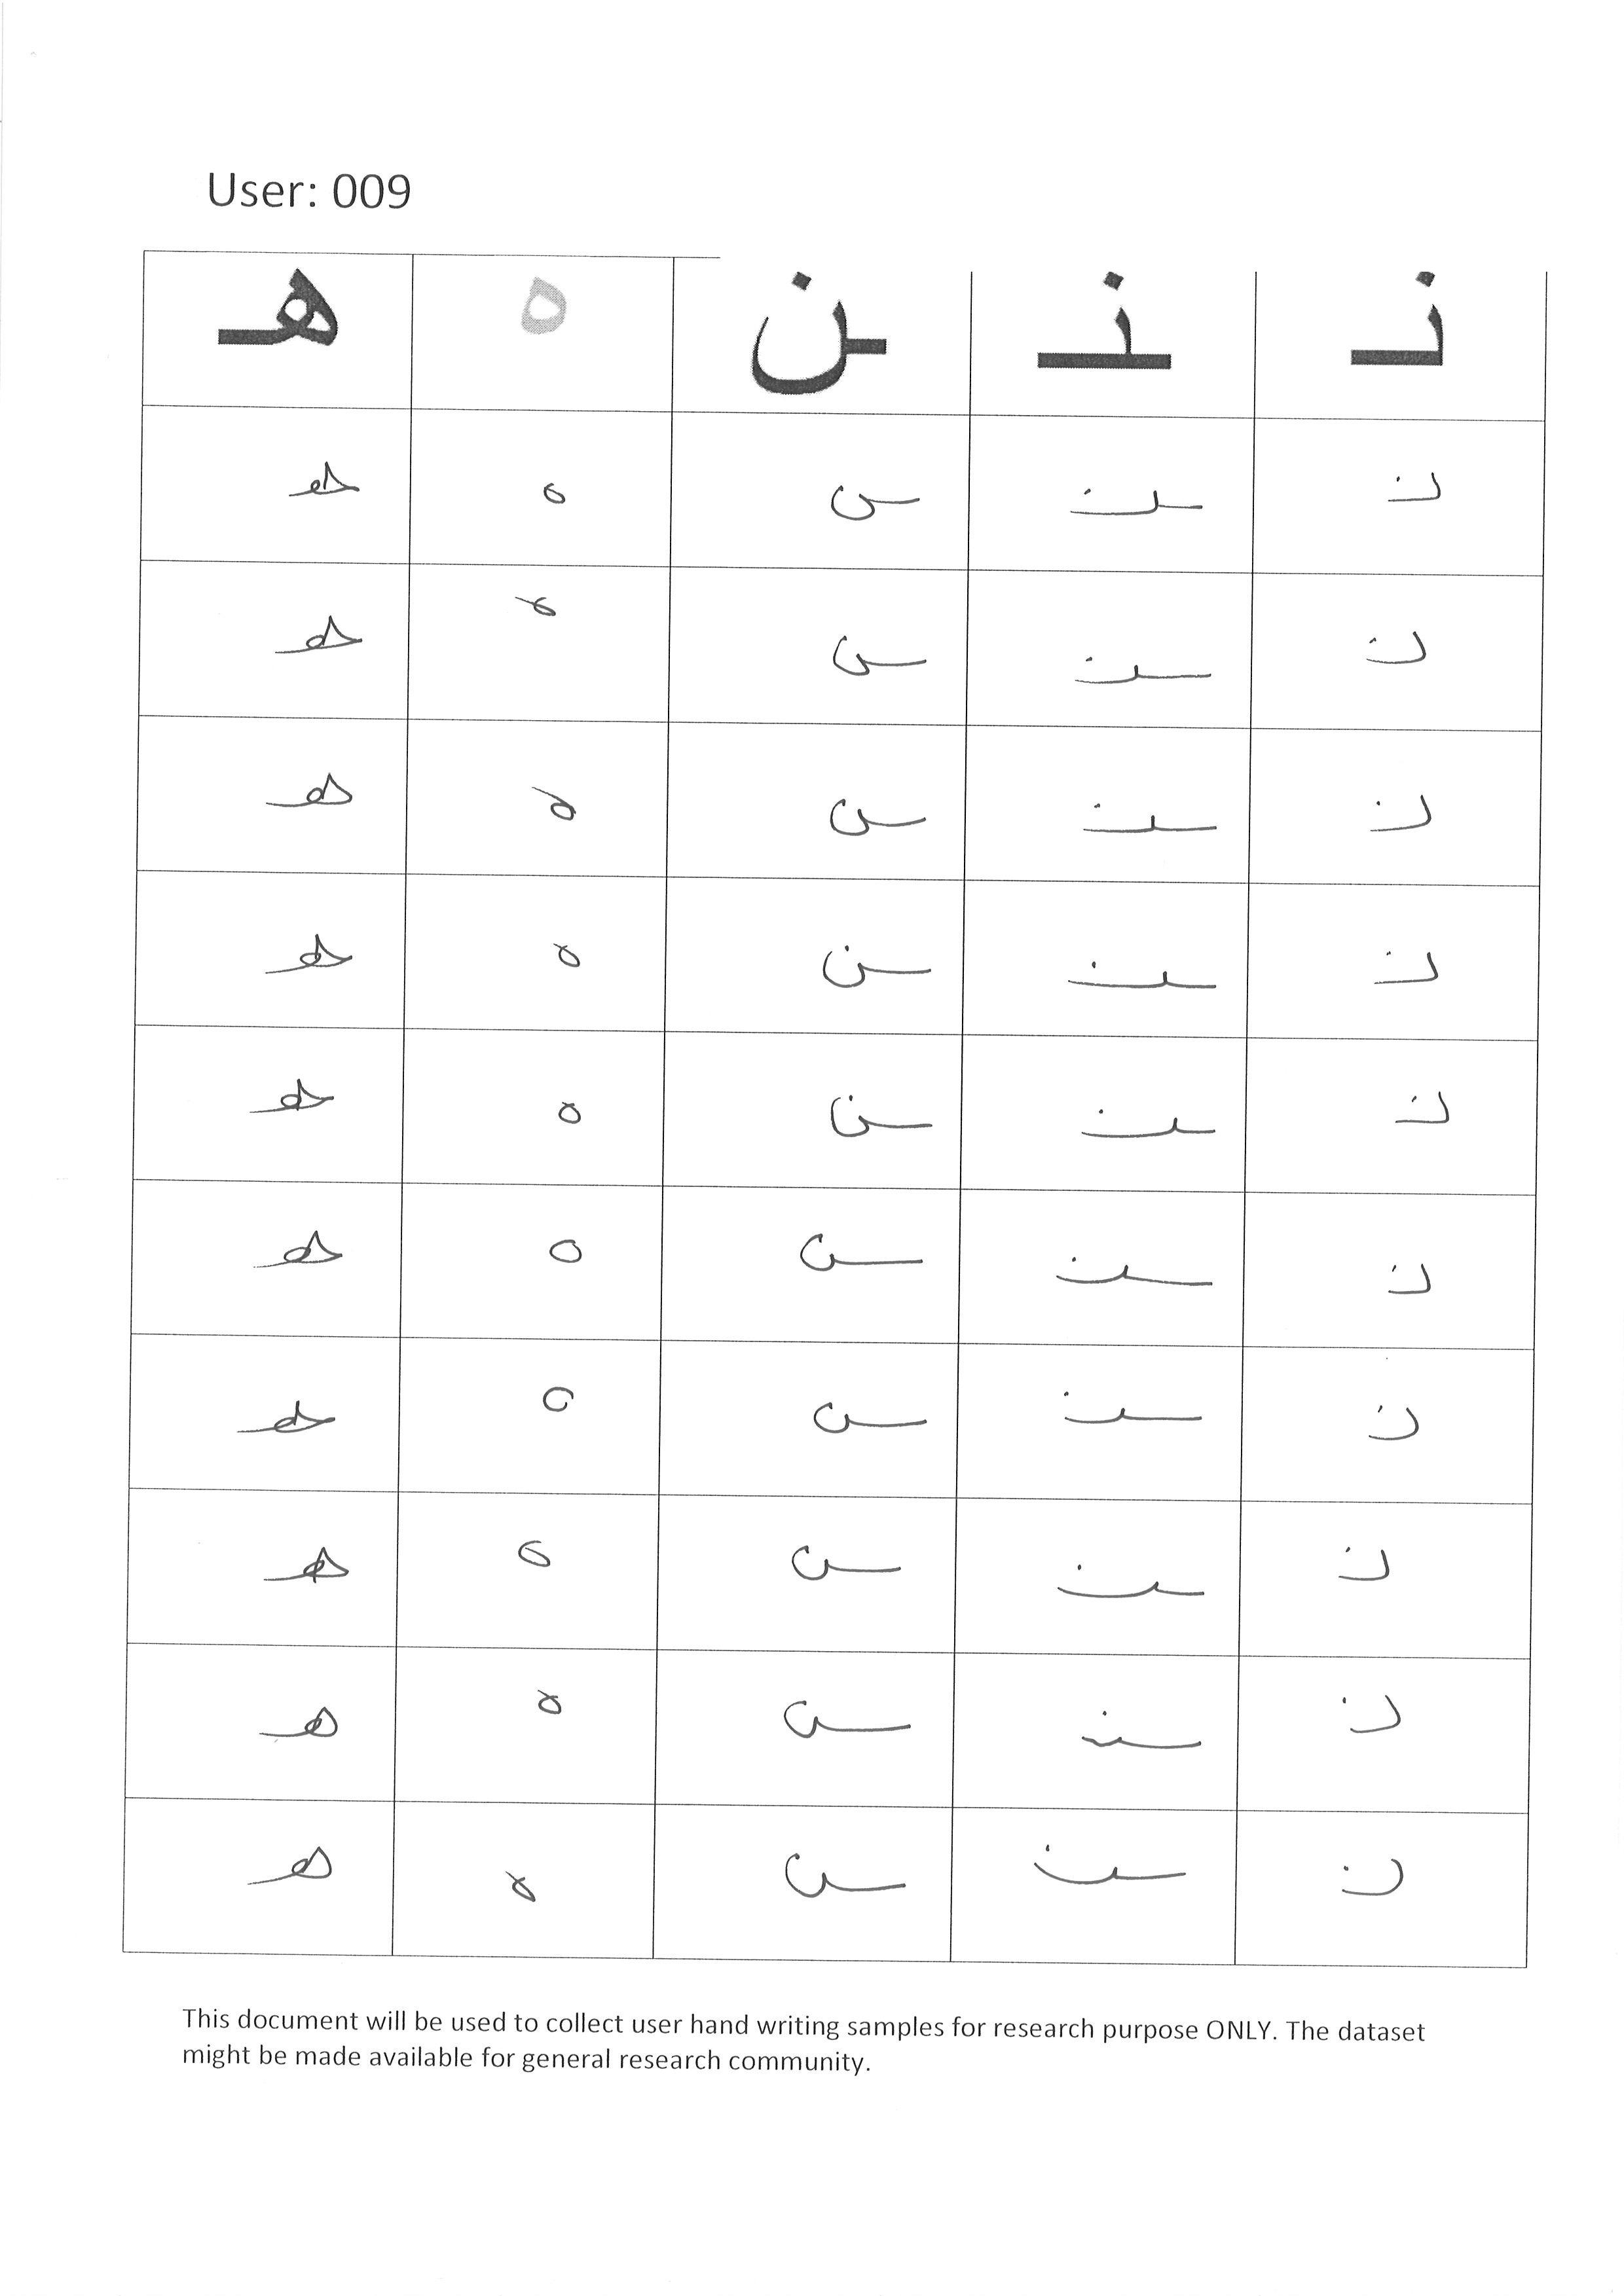 User: 009
نـ ـنـ ـن ه هـ
نـ ـنـ ـن ه هـ
نـ ـنـ ـن ه هـ
نـ ـنـ ـن ه هـ
نـ ـنـ ـن ه هـ
نـ ـنـ ـن ه هـ
نـ ـنـ ـن ه هـ
نـ ـنـ ـن ه هـ
نـ ـنـ ـن ه هـ
نـ ـنـ ـن ه هـ
نـ ـنـ ـن ه هـ
This document will be used to collect user hand writing samples for research purpose ONLY. The dataset
might be made available for general research community.